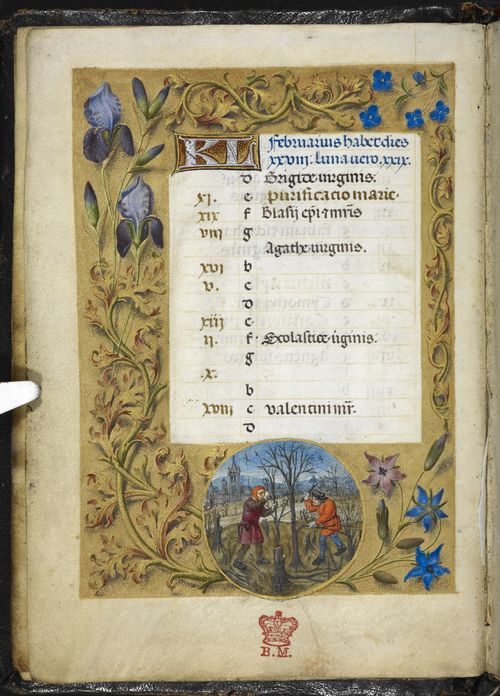 KL Februarius habet dies
xxviii. Luna vero. xxix.
d Brigide virginis.
xi. e Purificacio marie.
xix f Blasii epi & mris
viii g
Agathe virginis.
xvi b
v. c
d
xiii e
ii. f Scolastice v̄ginis.
g
x.
b
xviii c Valentini mr̄.
d
B. M.